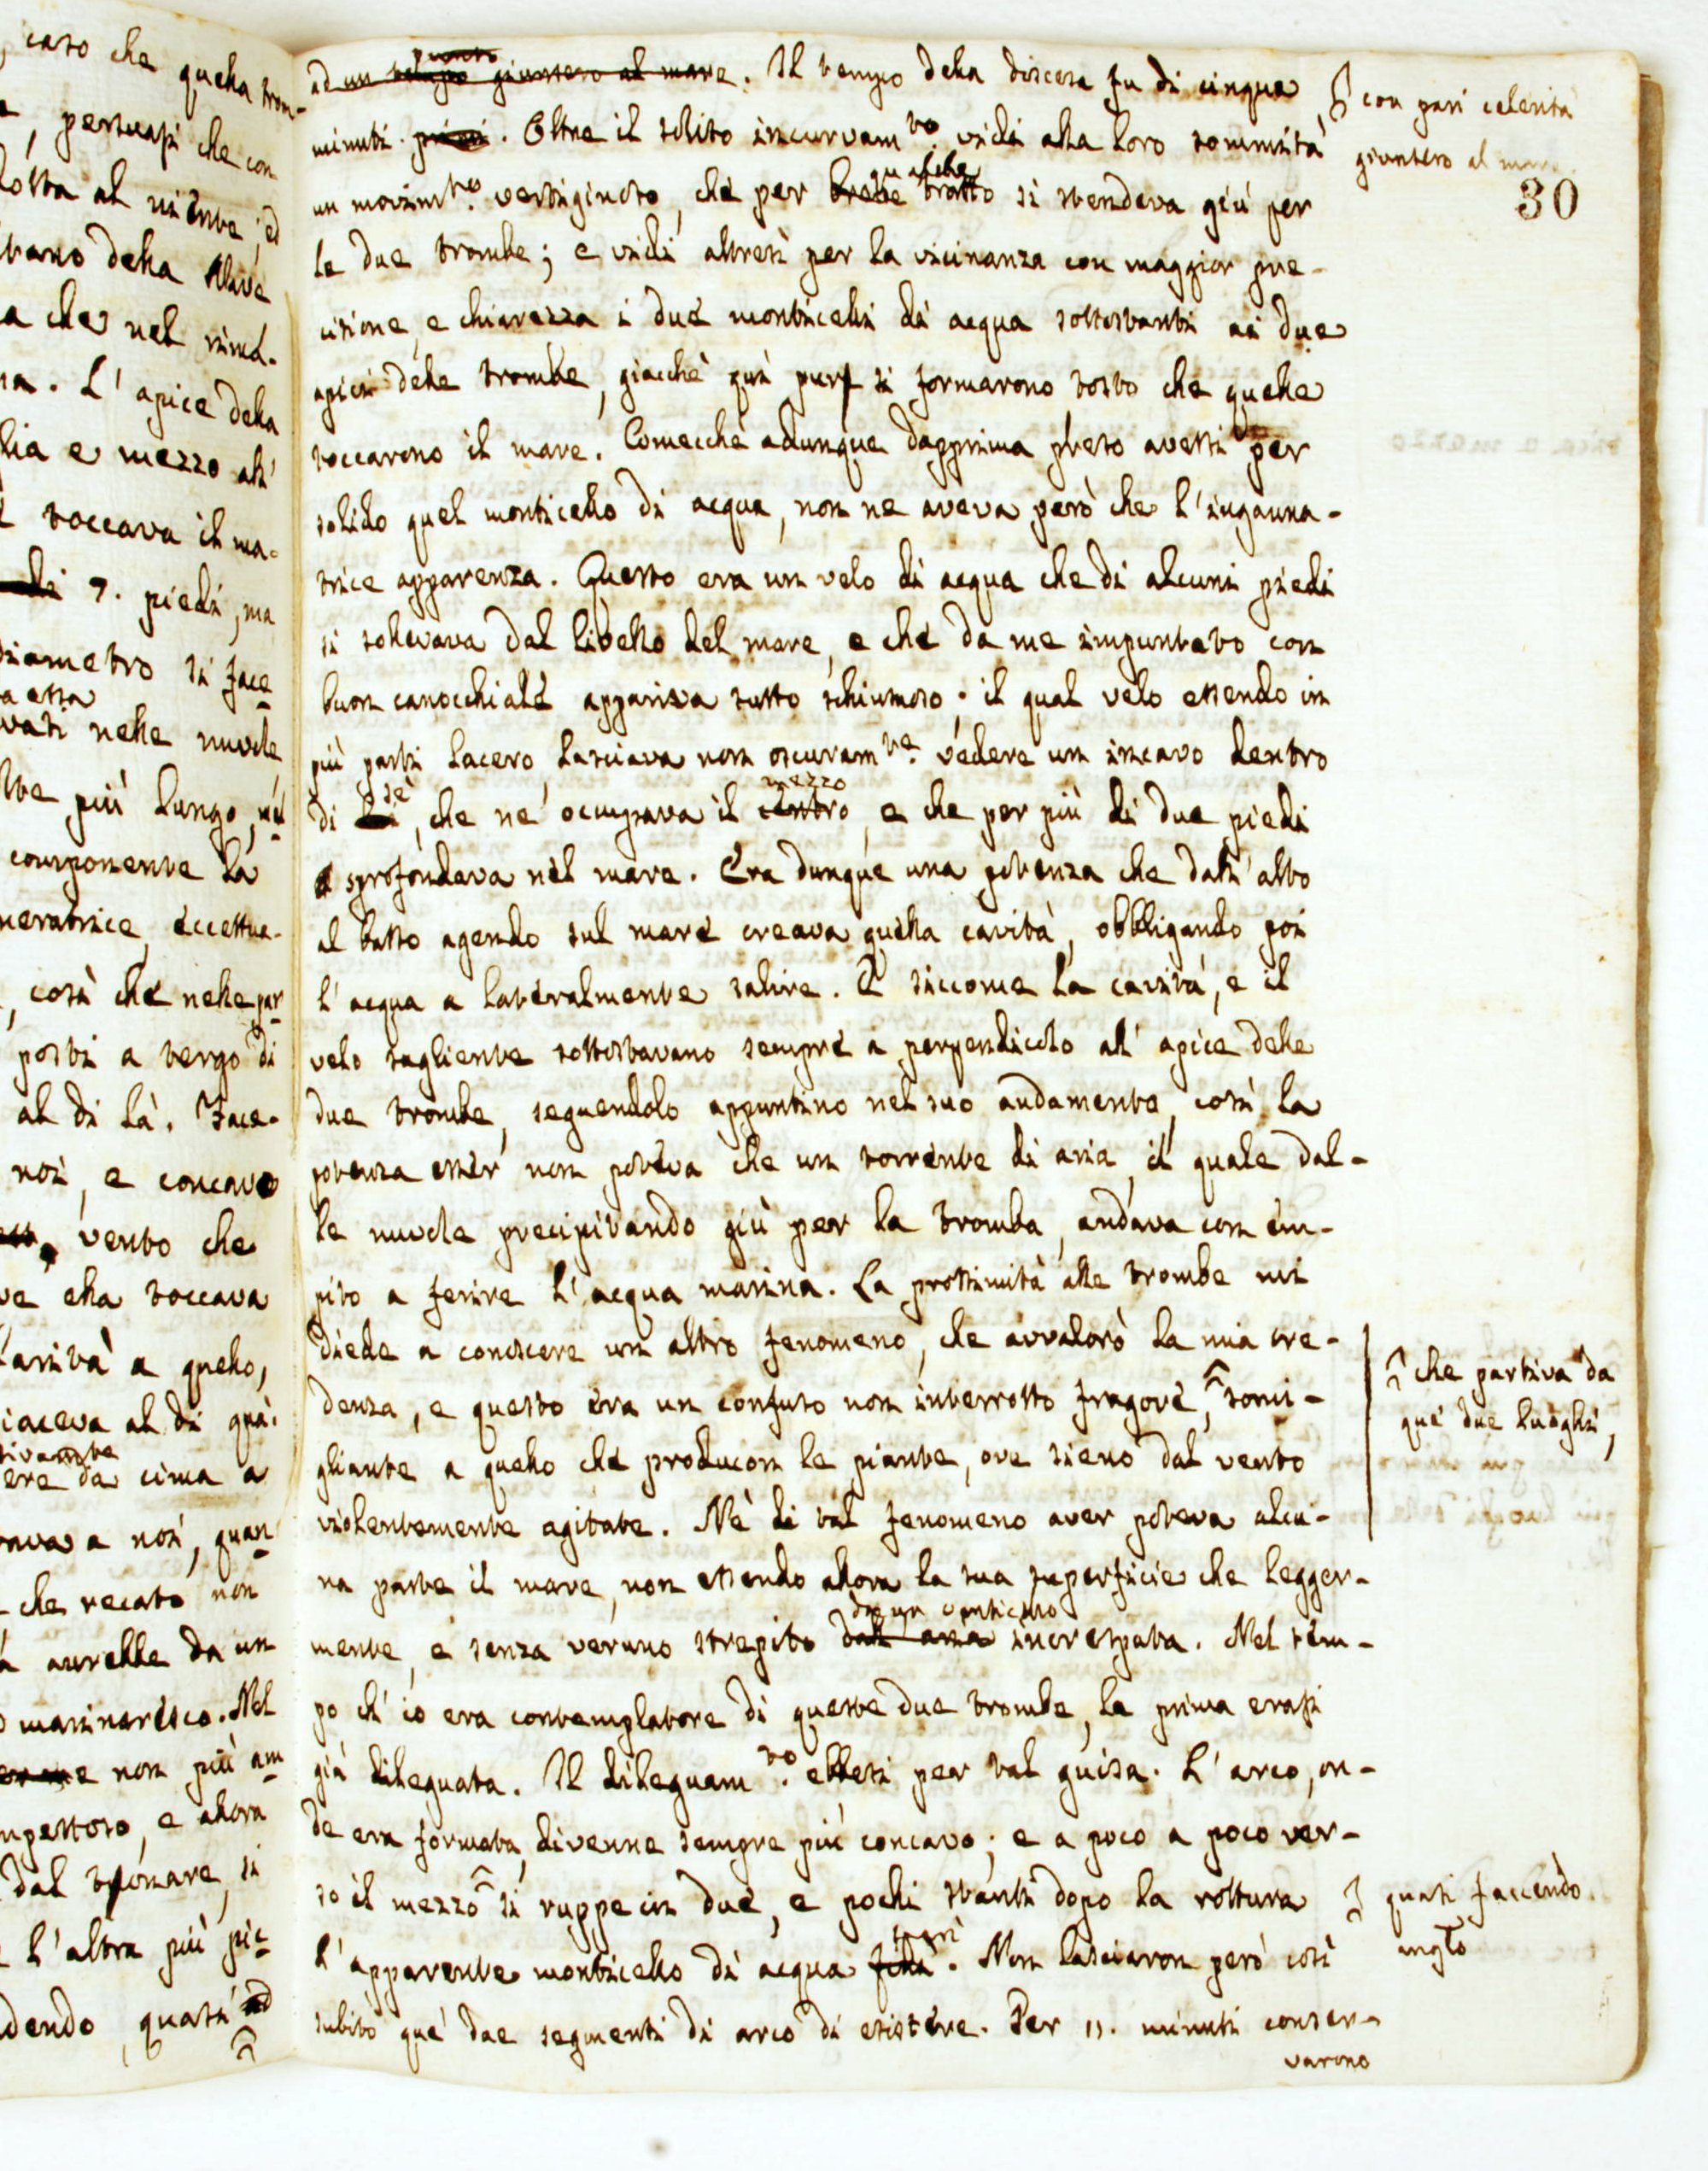 caso che quella trom-
, persuasi che con
lotta al niente, ed
tano della Nave
a che nel rima-
na. L'apice della
lia e mezzo all'
toccava il ma-
di 7. piedi, ma
diametro si face
a essa
vati nelle nuvole
lte più lungo, nel
componente la
neratrice, eccettua-
, così che nelle par
posti a tergo di
al di là. Face-
noi, e concavo
vento che
ve ella toccava
arità a quello,
iaceva al di quà:
tivamte
ere da cima a
a noi, quan
che recato non
avrebbe da un
marinaresco. Nel
e non più am
mpestoso, e allora
dal tuonare, si
l'altra più pic
dendo, quasi ad
punto
ad un tempo giunsero al mare. Il tempo della discesa fu di cinque
con pari celerità
minuti primi. Oltre il solito incurvamto. vidi alla loro sommità
giunsero al mare
30
qualche
un movimto. vertiginoso, che per breve tratto si stendeva giù per
le due trombe; e vidi altresì per la vicinanza con maggior pre-
cisione, e chiarezza i due monticelli di acqua sottostanti ai due
apici delle trombe, giacchè quì pur si formarono tosto che quelle
toccarono il mare. Comecchè adunque dapprima preso avessi per
solido quel monticello di acqua, non ne aveva però che l'inganna-
trice apparenza. Questo era un velo di acqua che di alcuni piedi
si sollevava dal livello del mare, e che da me impuntato con
buon canocchiale appariva tutto schiumoso; il qual velo essendo in
più parti lacero, lasciava non oscuramte. vedere un incavo dentro
sè mezzo
di lui, che ne occupava il centro, e che per più di due piedi
sprofondava nel mare. Era dunque una potenza che dall'alto
al basso agendo sul mare creava quella cavità, obbligando poi
l'acqua a lateralmente salire. E siccome la cavità, e il
velo sagliente sottostavano sempre a perpendicolo all'apice delle
due trombe, seguendolo appuntino nel suo andamento, così la
potenza esser non poteva che un torrente di aria, il quale dal-
le nuvole precipitando giù per la tromba, andava con em-
pito a ferire l'acqua marina. La prossimità alle trombe mi
diede a conoscere un altro fenomeno, che avvalorò la mia cre-
denza, e questo era un confuso non interrotto fragore, somi-
che partiva da
que' due luoghi,
gliante a quello che producon le piante, ove sieno dal vento
violentemente agitate. Nè di tal fenomeno aver poteva alcu-
na parte il mare, non essendo allora la sua superficie che legger-
da un venticello
mente, e senza veruno strepito dall'aria increspata. Nel tem-
po ch'io era contemplatore di queste due trombe, la prima erasi
già dileguata. Il dileguamto. ebbesi per tal guisa. L'arco, on-
de era formata, divenne sempre più concavo; e a poco a poco ver-
so il mezzo si ruppe in due, e pochi stanti dopo la rottura
quasi faccendo
anglo
sparì
l'apparente monticello di acqua finì. Non lasciaron però così
subito que' due segmenti di arco di esistere. Per 11. minuti conser-
varono